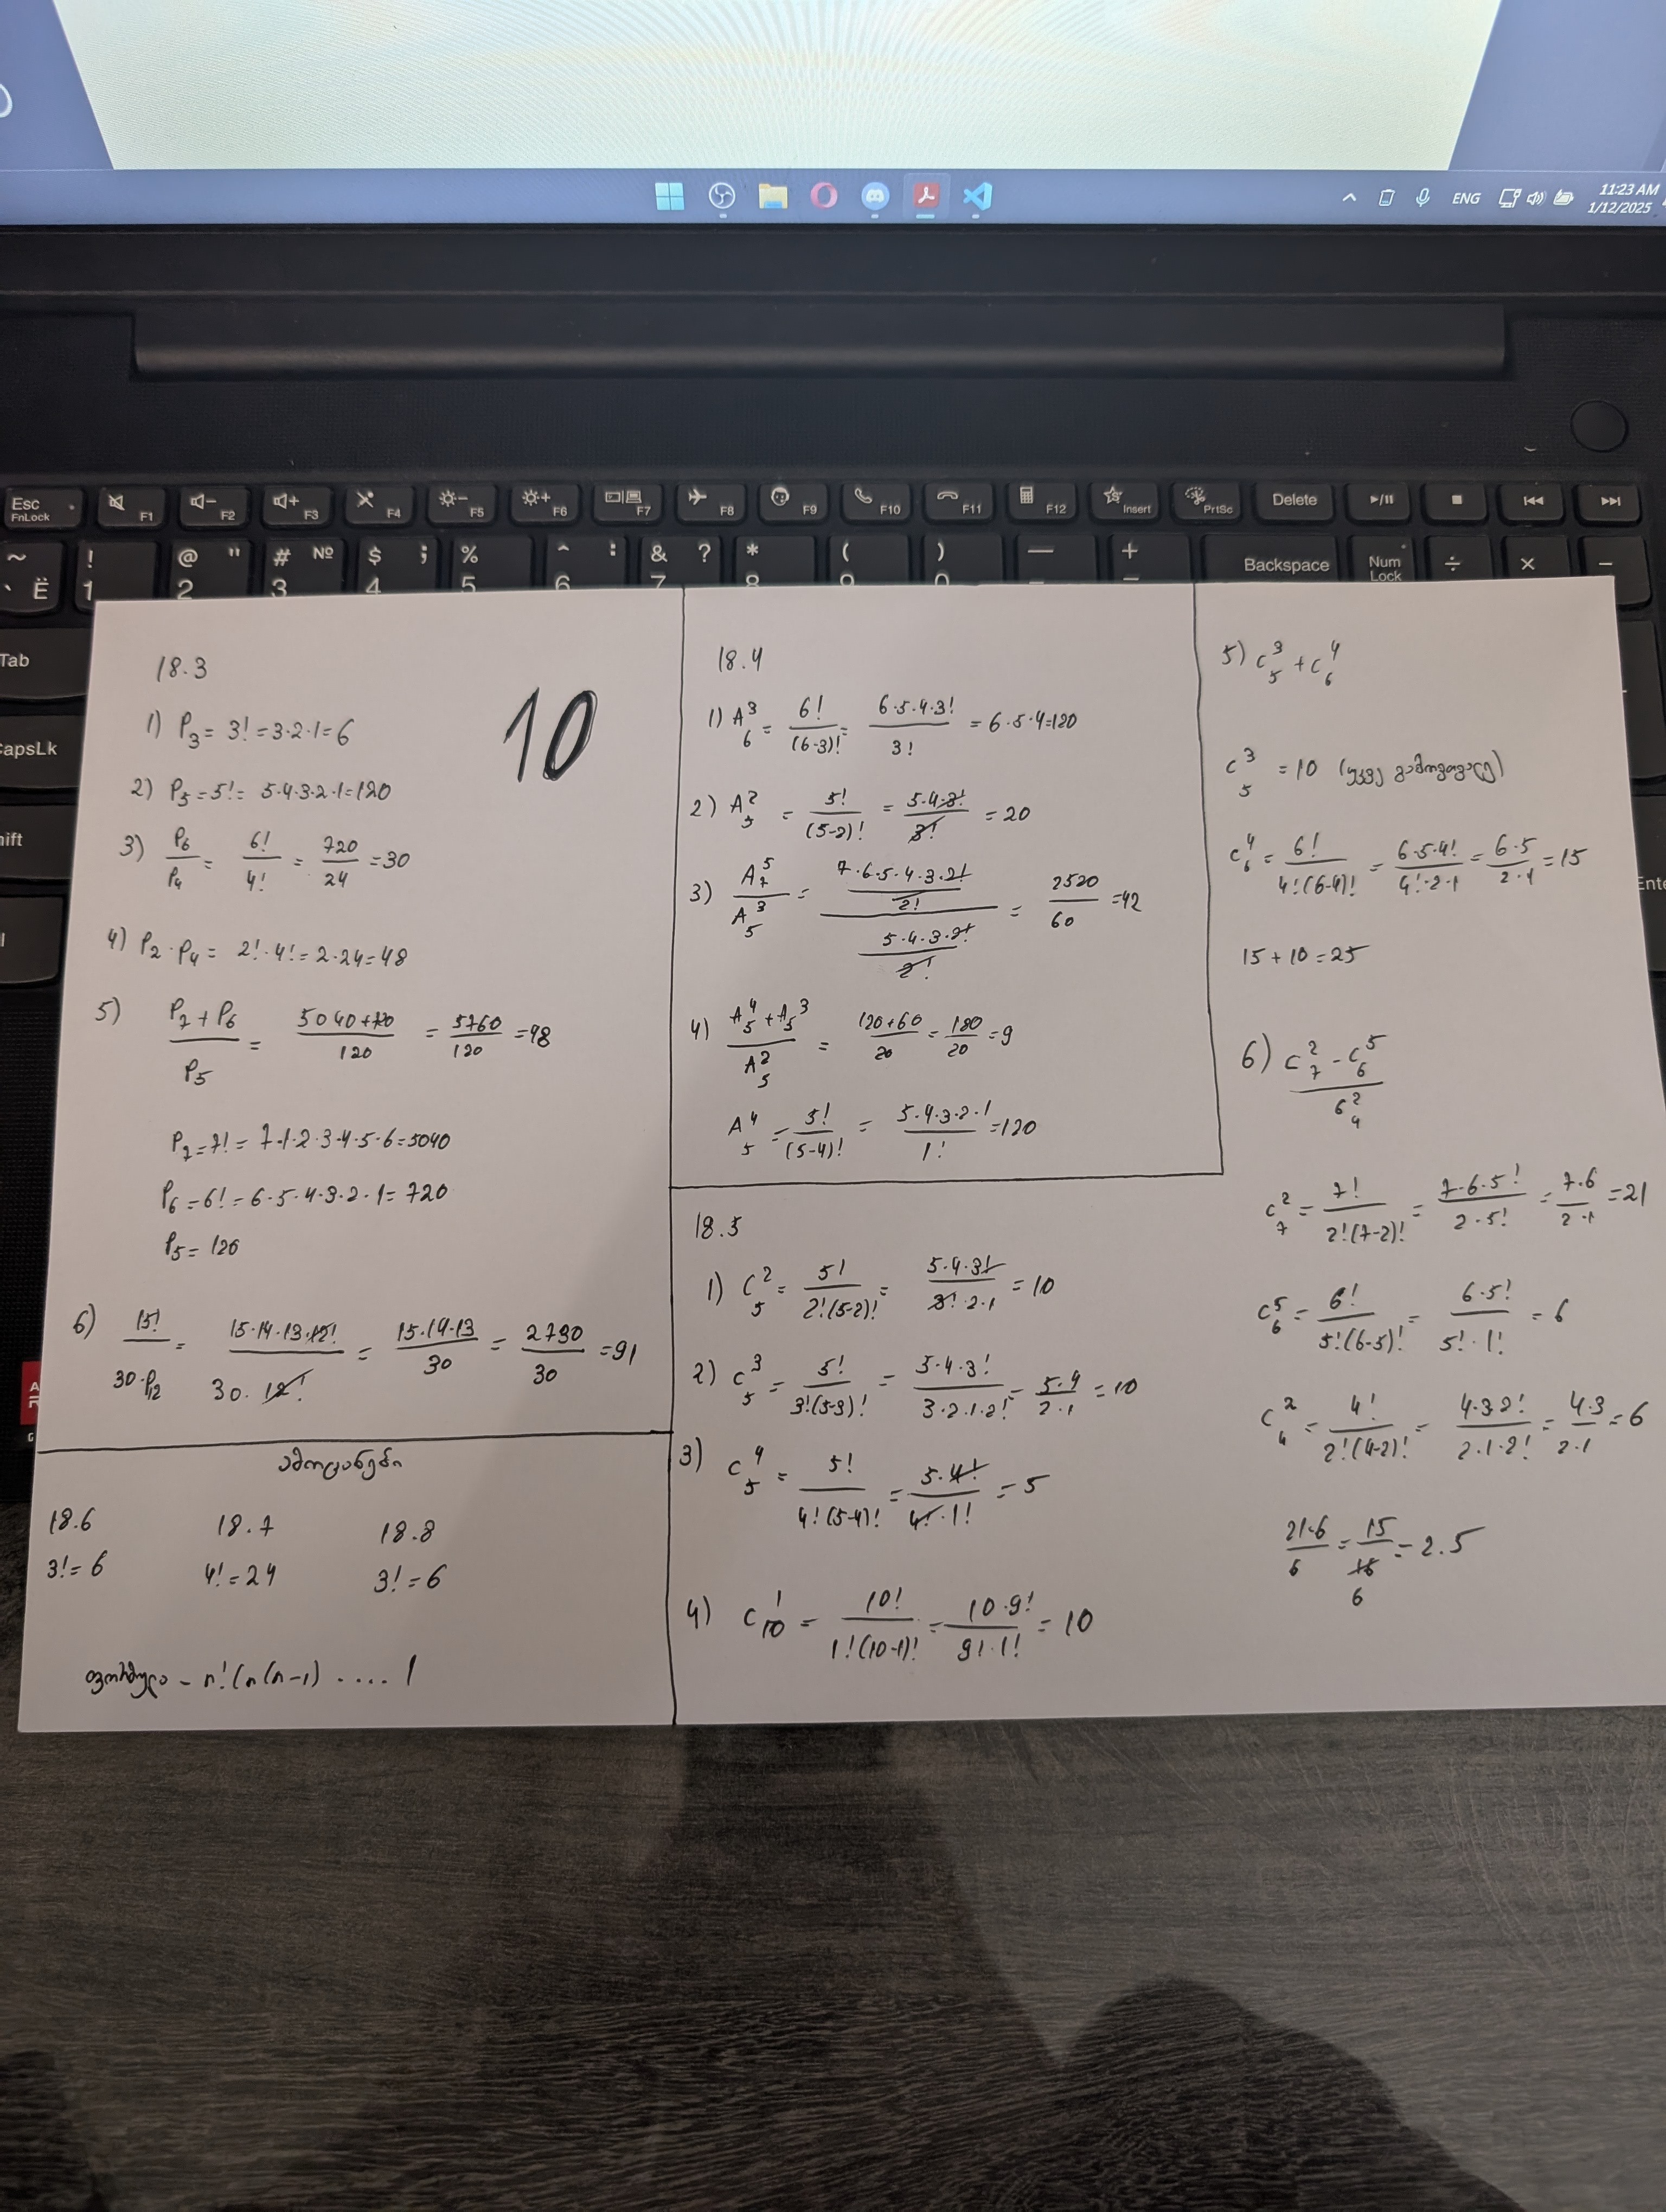 ENG
11:23 AM
1/12/2025
Esc
FnLock
F1
F2
F3
F4
F5
F6
F7
F8
F9
F10
F11
F12
Insert
PrtSc
Delete
~ ` Ё
! 1
@ " 2
# № 3
$ ; 4
% 5
^ : 6
& ? 7
* 8
( 9
) 0
Backspace
Num
Lock
Tab
CapsLk
Shift
Enter
10
18.3
1) P₃ = 3! = 3·2·1 = 6
2) P₅ = 5! = 5·4·3·2·1 = 120
3) P₆/P₄ = 6!/4! = 720/24 = 30
4) P₂·P₄ = 2!·4! = 2·24 = 48
5) (P₇+P₆)/P₅ = (5040+720)/120 = 5760/120 = 48
P₇ = 7! = 7·1·2·3·4·5·6 = 5040
P₆ = 6! = 6·5·4·3·2·1 = 720
P₅ = 120
6) 15!/(30·P₁₂) = 15·14·13·12!/(30·12!) = 15·14·13/30 = 2730/30 = 91
ამოცანები
18.6 18.7 18.8
3! = 6 4! = 24 3! = 6
ფორმულა - n! (n(n-1) .... 1
18.4
1) A₆³ = 6!/(6-3)! = 6·5·4·3!/3! = 6·5·4 = 120
2) A₅² = 5!/(5-2)! = 5·4·3!/3! = 20
3) A₇⁵/A₅³ = (7·6·5·4·3·2!/2!)/(5·4·3·2!/2!) = 2520/60 = 42
4) (A₅⁴+A₅³)/A₅² = (120+60)/20 = 180/20 = 9
A₅⁴ = 5!/(5-4)! = 5·4·3·2·1/1! = 120
18.5
1) C₅² = 5!/(2!(5-2)!) = 5·4·3!/(3!·2·1) = 10
2) C₅³ = 5!/(3!(5-3)!) = 5·4·3!/(3·2·1·2!) = 5·4/(2·1) = 10
3) C₅⁴ = 5!/(4!(5-4)!) = 5·4!/(4!·1!) = 5
4) C₁₀¹ = 10!/(1!(10-1)!) = 10·9!/(9!·1!) = 10
5) C₅³ + C₆⁴
C₅³ = 10 (უკვე გამოვთვალე)
C₆⁴ = 6!/(4!(6-4)!) = 6·5·4!/(4!·2·1) = 6·5/(2·1) = 15
15 + 10 = 25
6) (C₇² - C₆⁵)/6₄²
C₇² = 7!/(2!(7-2)!) = 7·6·5!/(2·5!) = 7·6/(2·1) = 21
C₆⁵ = 6!/(5!(6-5)!) = 6·5!/(5!·1!) = 6
C₄² = 4!/(2!(4-2)!) = 4·3·2!/(2·1·2!) = 4·3/(2·1) = 6
(21-6)/6 = 15/6 = 2.5